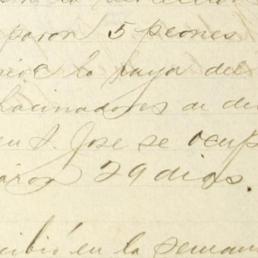 paron 5 peones
la raya del
hacinadores de di
en S. Jose se ocup
aron 29 dias.
cibió en la semana